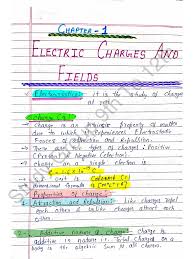 CHAPTER - 1
ELECTRIC CHARGES AND
FIELDS
Electrostatics : It is the study of charges
at rest.
Charge (q)
Charge is an intrinsic property of matter
due to which it experiences Electrostatic
Forces of attraction and Repulsion.
There are two types of charges : Positive
(Proton), Negative (electron).
Charge on a single electron is
Its unit is Coloumb (C)
Dimensional formula is
Properties of charge :-
Attraction and Repulsion : Like charges repel
each other & unlike charges attract each
other.
Additive nature of charge : Charge is
additive in nature i.e. total charge on a
body is the algebric sum of all charges